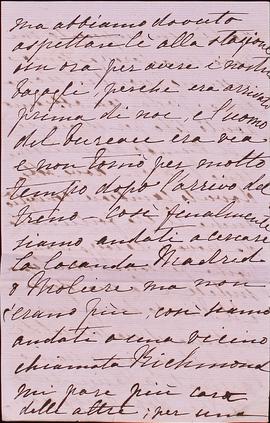 ma abbiamo dovuto
aspettare lè alla stazione
un ora per avere i nostri
bagagli perchè era arrivati
prima di noi, e l'uomo
del bureau era via
e non tornò per molto
tempo dopo l'arrivo del
treno - così finalmente
siamo andati a cercare
la locanda Madrid
& Moliere ma non
c'erano più, così siamo
andati a una vicino
chiamata Richmond
mi pare più cara
delle altre; per una